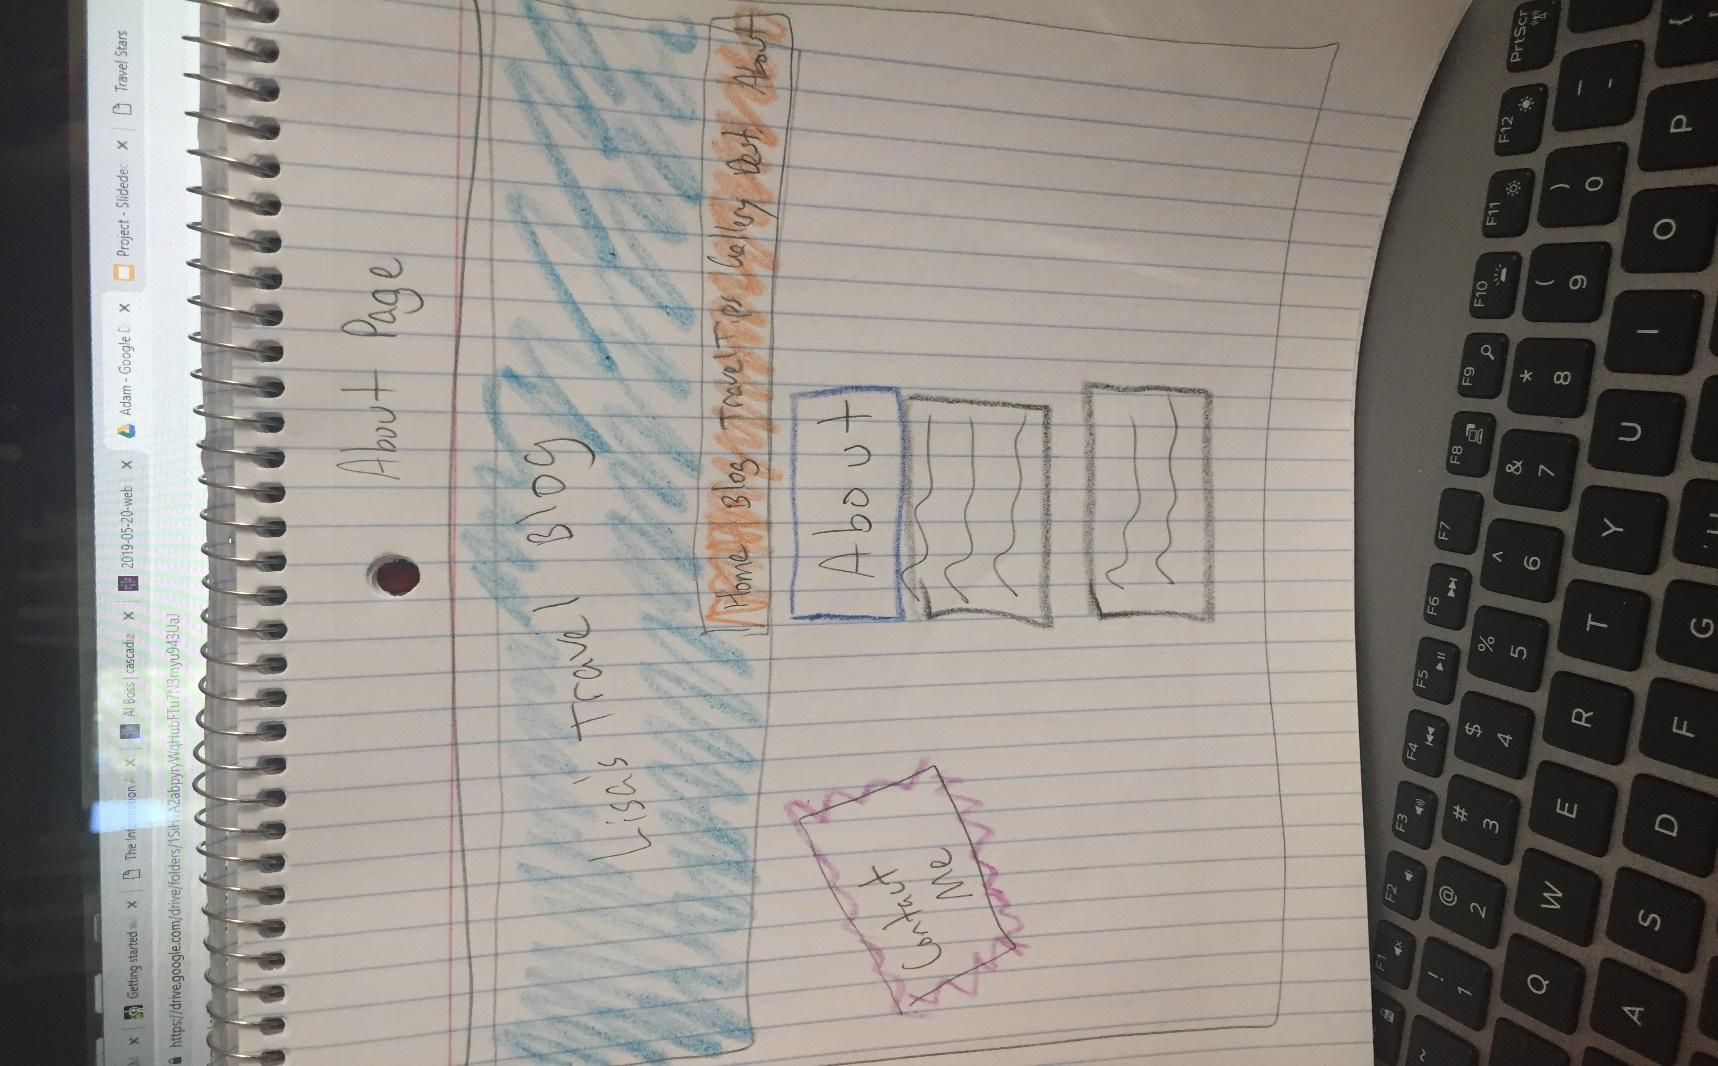 Getting started w
The Information A
AI Boss | cascadia
2019-05-20-web
Adam - Google D
Project - Slidedec
Travel Stars
https://drive.google.com/drive/folders/
About Page
Lisa's Travel Blog
Home Blog Travel Tips Gallery Dest About
About
Contact
Me
F1 F2 F3 F4 F5 F6 F7 F8 F9 F10 F11 F12 PrtScr
~ ! 1 @ 2 # 3 $ 4 % 5 ^ 6 & 7 * 8 ( 9 ) 0 _ -
Q W E R T Y U I O P {
A S D F G